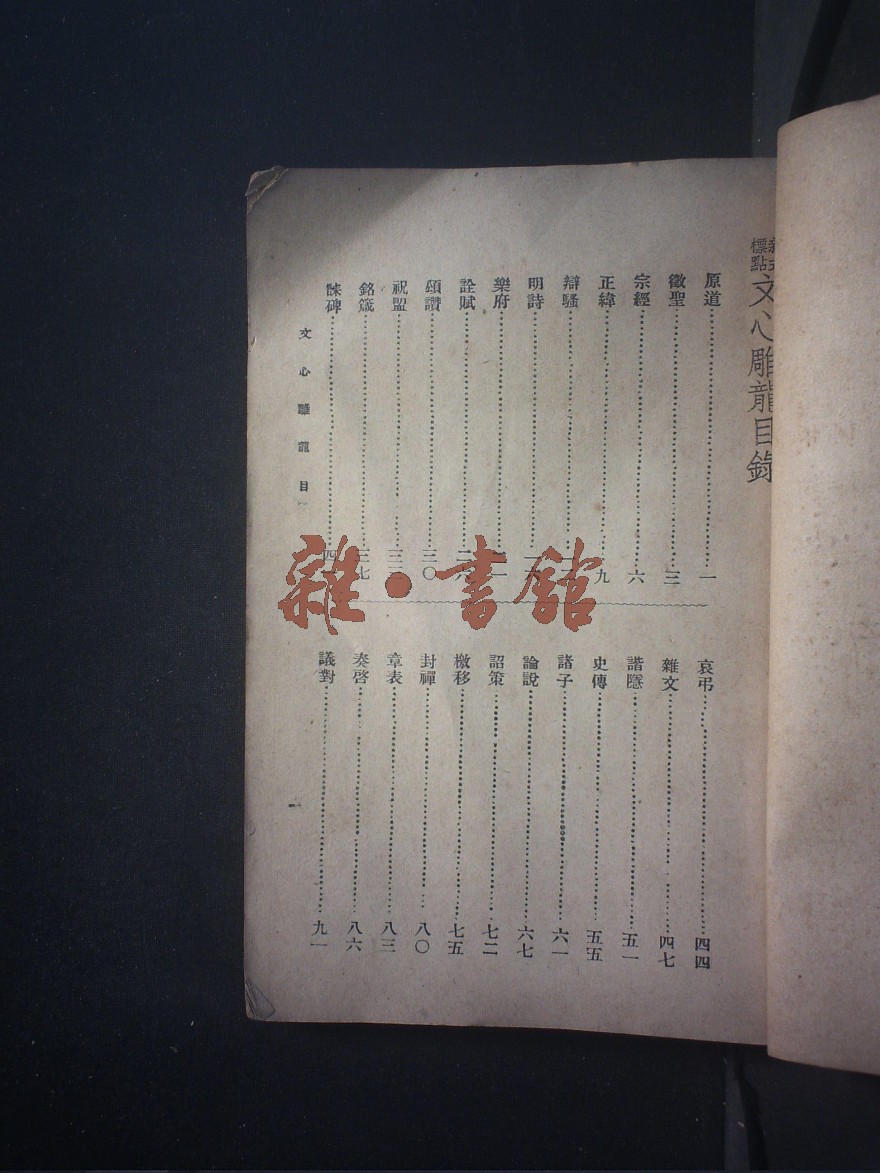 標點
文心雕龍目錄
原道……一
徵聖……三
宗經……六
正緯……九
辯騷
明詩
樂府
詮賦
頌讚……三〇
祝盟
銘箴……三七
誄碑
哀弔……四四
雜文……四七
諧隱……五一
史傳……五五
諸子……六一
論說……六七
詔策……七二
檄移……七五
封禪……八〇
章表……八三
奏啓……八六
議對……九一
文心雕龍 目
一
雜·書館